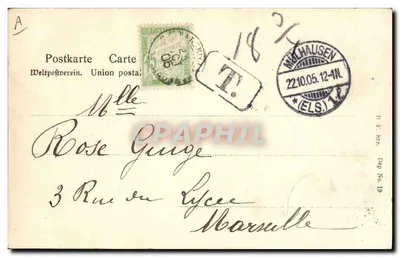 A
18
Postkarte Carte
Weltpostverein. Union posta
T.
MÜLHAUSEN
22.10.05.12-1N.
*(ELS)1
Mlle
Rose Guige
3 Rue du Lycee
Marseille
CPAPHIL
Dép No. 19